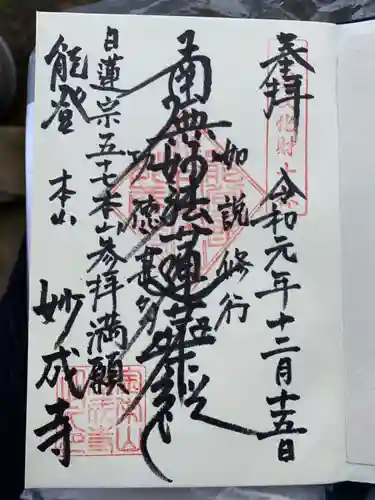 奉拝
令和元年十二月十五日
如説修行
南無妙法蓮華経
功徳甚多
日蓮宗五十七本山参拝満願
能登 本山 妙成寺